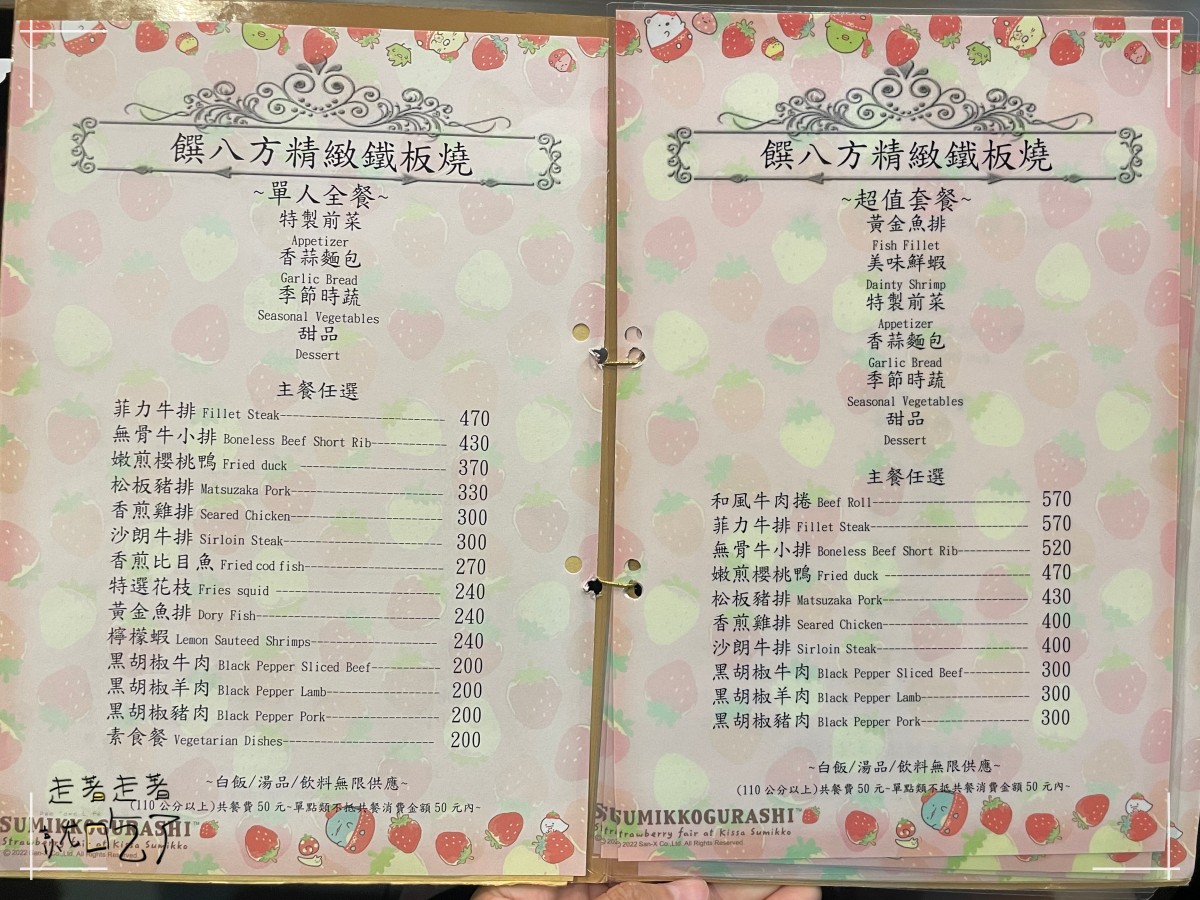 饌八方精緻鐵板燒
~單人全餐~
特製前菜
Appetizer
香蒜麵包
Garlic Bread
季節時蔬
Seasonal Vegetables
甜品
Dessert
主餐任選
菲力牛排 Fillet Steak 470
無骨牛小排 Boneless Beef Short Rib 430
嫩煎櫻桃鴨 Fried duck 370
松板豬排 Matsuzaka Pork 330
香煎雞排 Seared Chicken 300
沙朗牛排 Sirloin Steak 300
香煎比目魚 Fried cod fish 270
特選花枝 Fries squid 240
黃金魚排 Dory Fish 240
檸檬蝦 Lemon Sauteed Shrimps 240
黑胡椒牛肉 Black Pepper Sliced Beef 200
黑胡椒羊肉 Black Pepper Lamb 200
黑胡椒豬肉 Black Pepper Pork 200
素食餐 Vegetarian Dishes 200
~白飯/湯品/飲料無限供應~
(110公分以上)共餐費50元~單點類不抵共餐消費金額50元內~
走著走著
就回ㄅ了
SUMIKKOGURASHI™
Strawberry fair at Kissa Sumikko
©2022 San-X Co.,Ltd. All Rights Reserved.
饌八方精緻鐵板燒
~超值套餐~
黃金魚排
Fish Fillet
美味鮮蝦
Dainty Shrimp
特製前菜
Appetizer
香蒜麵包
Garlic Bread
季節時蔬
Seasonal Vegetables
甜品
Dessert
主餐任選
和風牛肉捲 Beef Roll 570
菲力牛排 Fillet Steak 570
無骨牛小排 Boneless Beef Short Rib 520
嫩煎櫻桃鴨 Fried duck 470
松板豬排 Matsuzaka Pork 430
香煎雞排 Seared Chicken 400
沙朗牛排 Sirloin Steak 400
黑胡椒牛肉 Black Pepper Sliced Beef 300
黑胡椒羊肉 Black Pepper Lamb 300
黑胡椒豬肉 Black Pepper Pork 300
~白飯/湯品/飲料無限供應~
(110公分以上)共餐費50元~單點類不抵共餐消費金額50元內~
SUMIKKOGURASHI™
Strawberry fair at Kissa Sumikko
2022 San-X Co.,Ltd. All Rights Reserved.